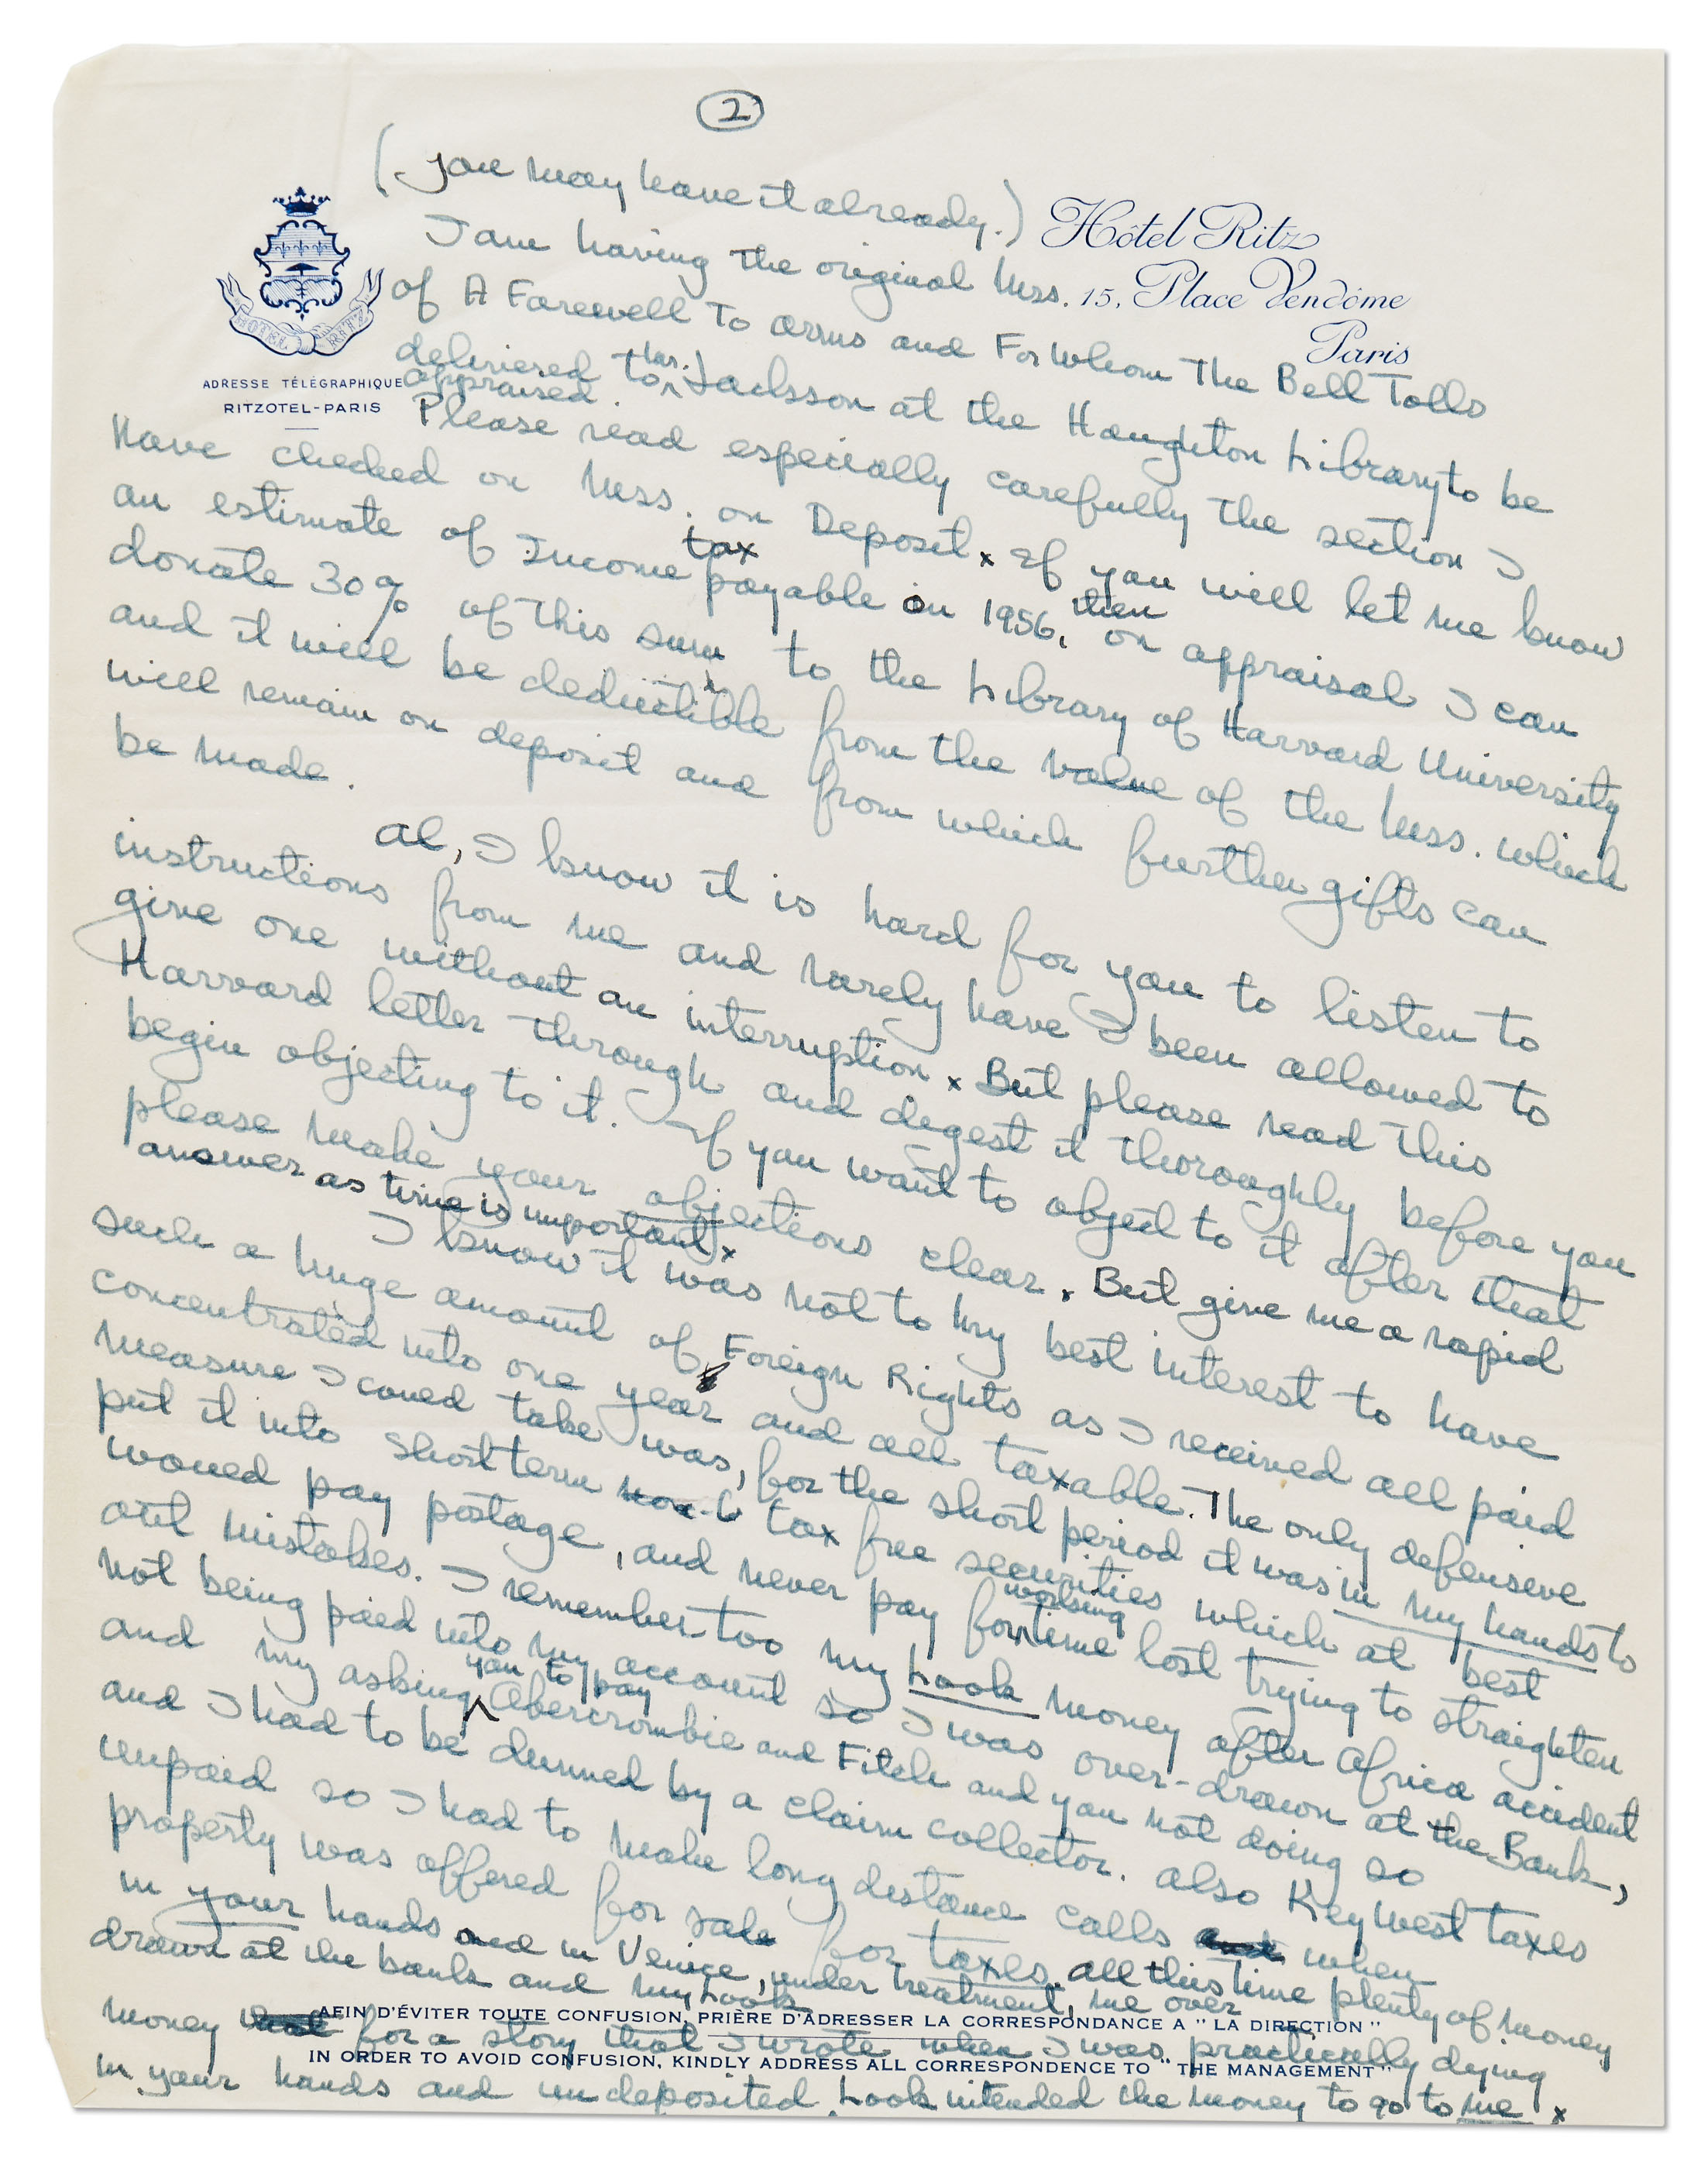 2
(you may have it already.)
HOTEL RITZ
ADRESSE TÉLÉGRAPHIQUE
RITZOTEL-PARIS
Hôtel Ritz
15, Place Vendôme
Paris
I am having the original Mss.
of A Farewell To arms and For Whom The Bell Tolls
delivered to Mr. Jackson at the Houghton Library to be
appraised.
Please read especially carefully the section I
have checked on Mss. on Deposit x If you will let me know
an estimate of Income tax payable on 1956, then on appraisal I can
donate 30% of this sum to the Library of Harvard University
and it will be deductible from the value of the Mss. which
will remain on deposit and from which further gifts can
be made.
Al, I know it is hard for you to listen to
instructions from me and rarely have I been allowed to
give one without an interruption x But please read this
Harvard letter through and digest it thoroughly before you
begin objecting to it. If you want to object to it after that
please make your objections clear. But give me a rapid
answer as time is important x
I know it was not to my best interest to have
such a huge amount of Foreign Rights as I received all paid
concentrated into one year and all taxable. The only defensive
measure I could take was, for the short period it was in my hands to
put it into short term tax free securities which at best
would pay postage, and never pay for working time lost trying to straighten
out mistakes. I remember too my Look money after Africa accident
not being paid into my account so I was over-drawn at the Bank,
and my asking you to pay Abercrombie and Fitch and you not doing so
and I had to be dunned by a claim collector. Also Key West taxes
unpaid so I had to make long distance calls and when
property was offered for sale for taxes. All this time plenty of money
in your hands and in Venice, under treatment, me over
drawn at the bank and my Look
money for a story that I wrote when I was practically dying
in your hands and un deposited. Look intended the money to go to me x
AFIN D'ÉVITER TOUTE CONFUSION, PRIÈRE D'ADRESSER LA CORRESPONDANCE A "LA DIRECTION"
IN ORDER TO AVOID CONFUSION, KINDLY ADDRESS ALL CORRESPONDENCE TO "THE MANAGEMENT"